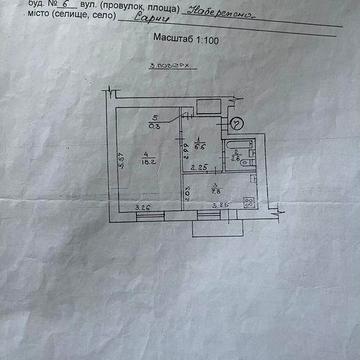 буд. № 6 вул. (провулок, площа) Набережна
місто (селище, село) Сарни
Масштаб 1:100
3 поверх
5
0.3
7
1
6.6
2.99
4
18.2
5.57
2.25
2.03
3
7.8
3.26
3.26